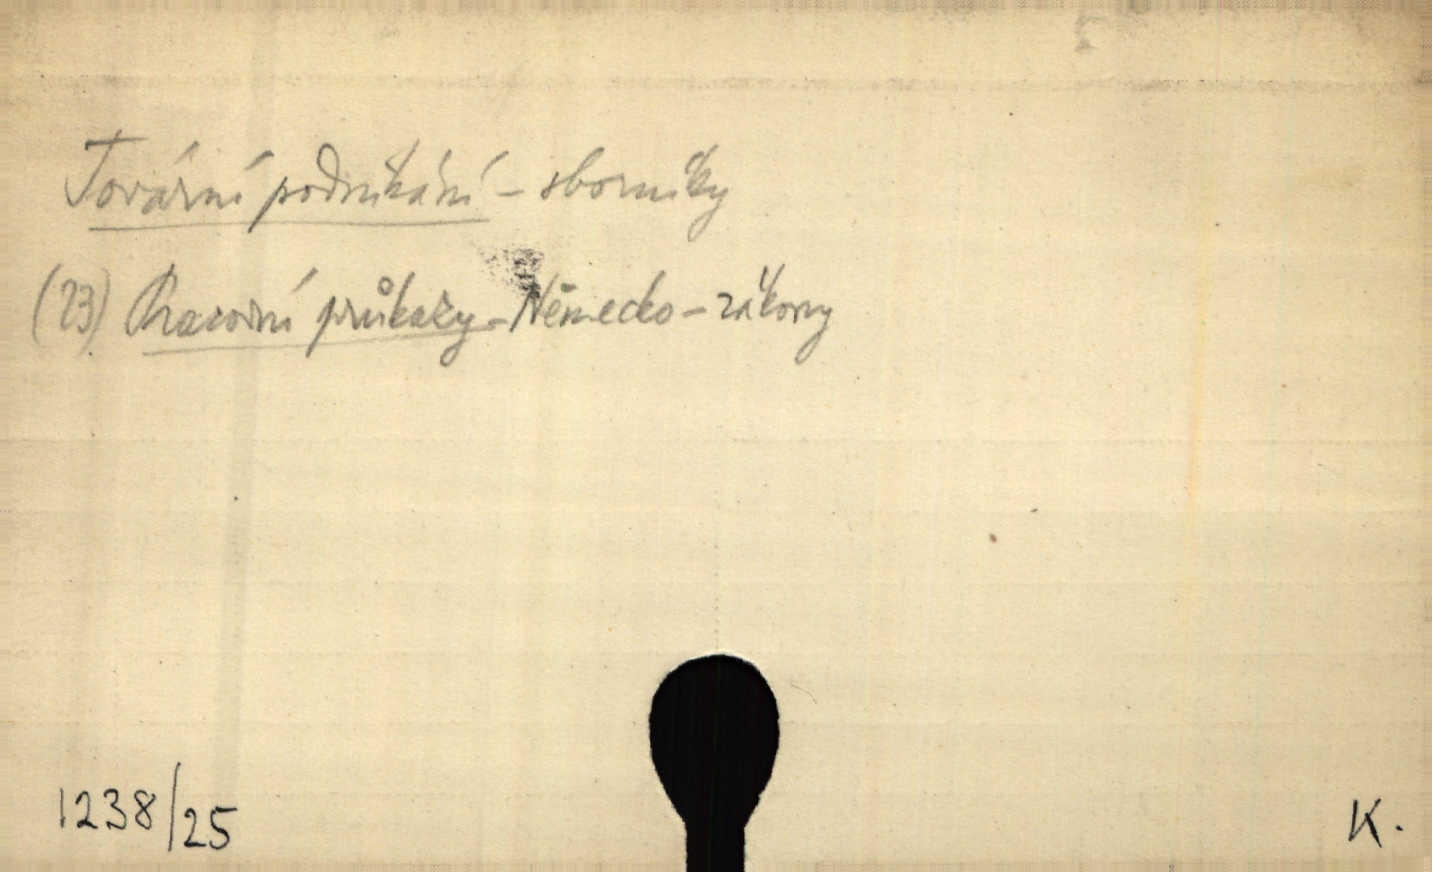 Tovární podnikání - sborníky
(23) Pracovní průkazy - Německo - zákony
1238/25
K.